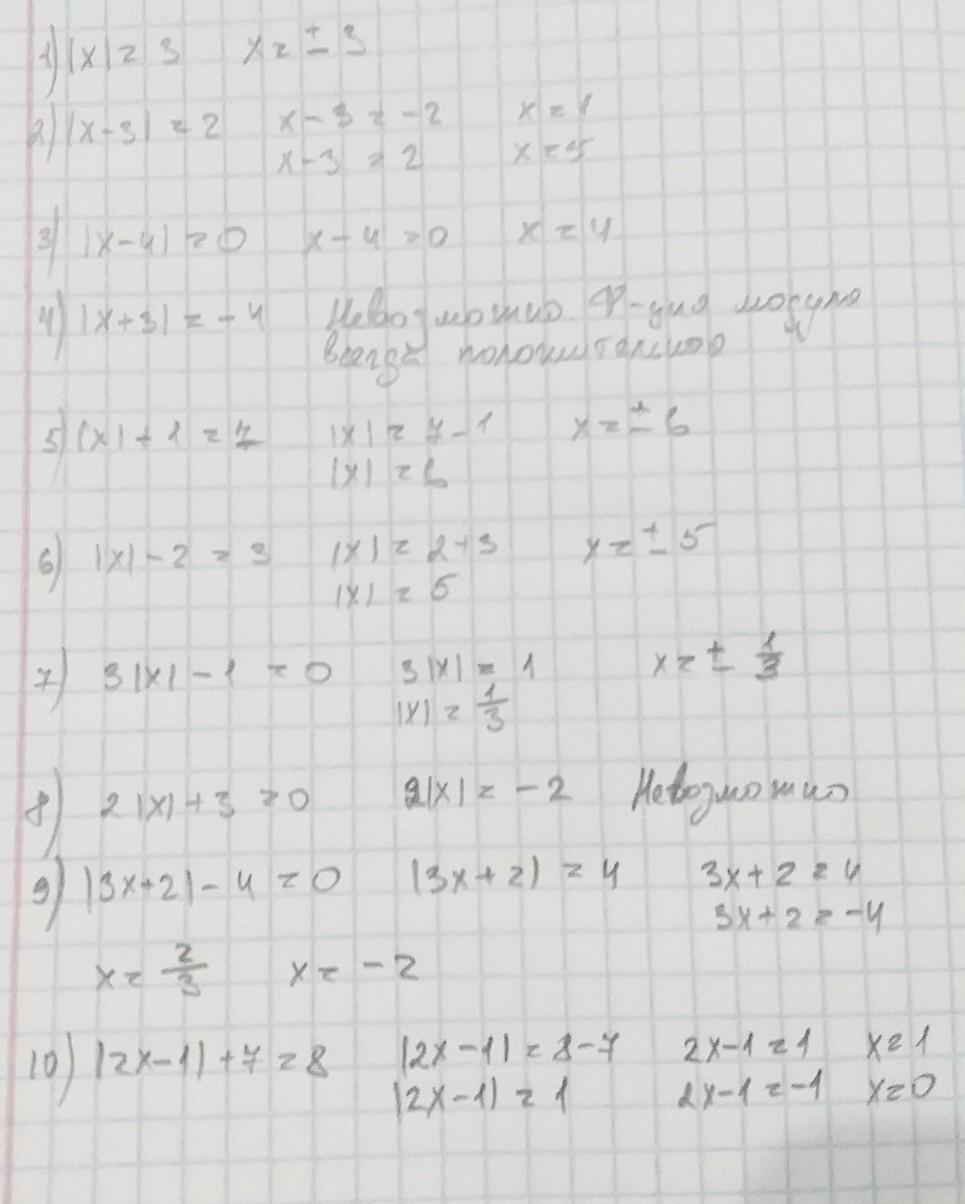 1) |x| = 3 x = ± 3
2) |x-3| = 2 x-3 = -2 x = 1
x-3 = 2 x = 5
3) |x-4| = 0 x-4 = 0 x = 4
4) |x+3| = -4 Невозможно. Ф-ция модуля
всегда положительная
5) |x| + 1 = 7 |x| = 7-1 x = ± 6
|x| = 6
6) |x| - 2 = 3 |x| = 2+3 x = ± 5
|x| = 5
7) 3|x| - 1 = 0 3|x| = 1 x = ± 1/3
|x| = 1/3
8) 2|x| + 3 = 0 2|x| = -2 Невозможно
9) |3x+2| - 4 = 0 |3x+2| = 4 3x+2 = 4
3x+2 = -4
x = 2/3 x = -2
10) |2x-1| + 7 = 8 |2x-1| = 8-7 2x-1 = 1 x = 1
|2x-1| = 1 2x-1 = -1 x = 0